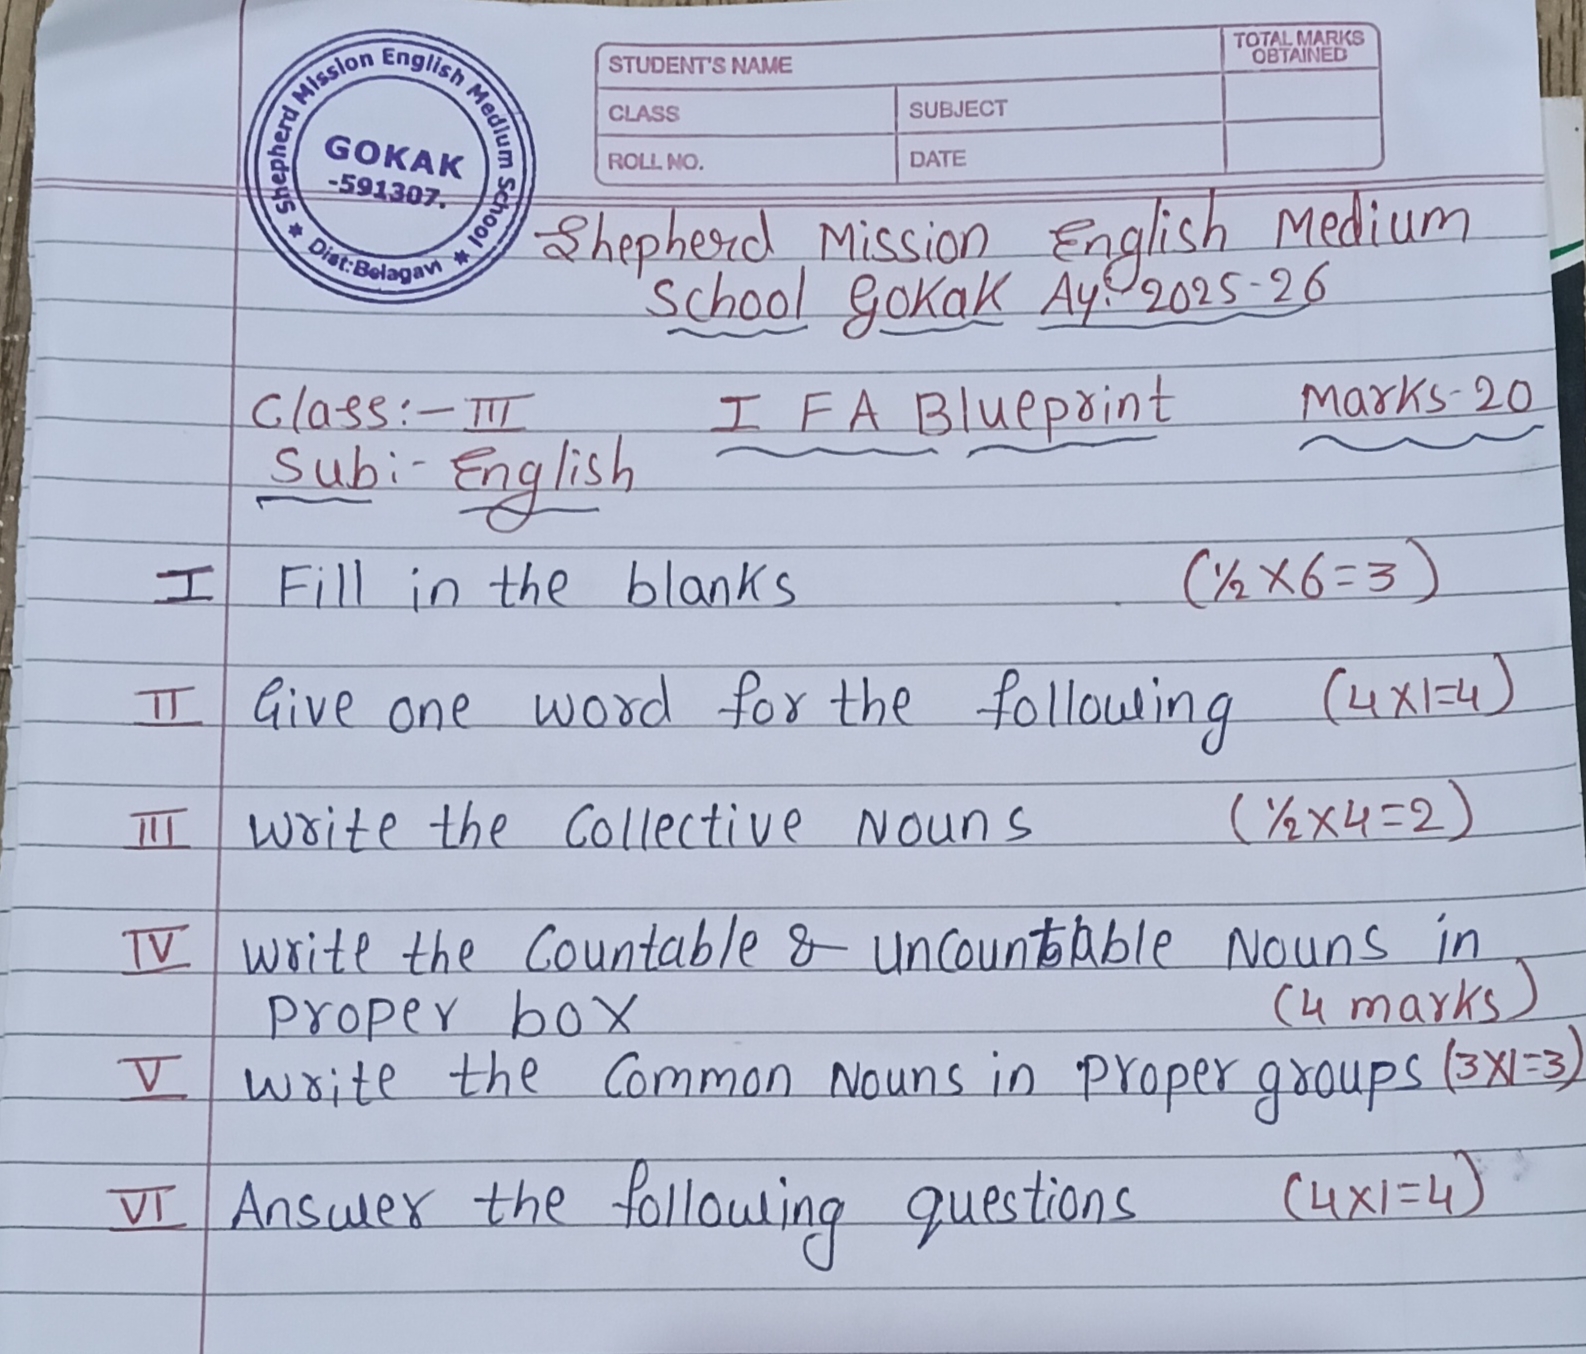 Shepherd Mission English Medium School
GOKAK
-591307.
* Dist:Belagavi *
STUDENT'S NAME
TOTAL MARKS
OBTAINED
CLASS
SUBJECT
ROLL NO.
DATE
Shepherd Mission English Medium
School Gokak Ay:- 2025-26
Class:- III I FA Blueprint Marks-20
Sub:- English
I Fill in the blanks (½ X6=3)
II Give one word for the following (4X1=4)
III Write the Collective Nouns (½X4=2)
IV Write the Countable & Uncountable Nouns in
proper box (4 marks)
V Write the Common Nouns in proper groups (3X1=3)
VI Answer the following questions (4X1=4)